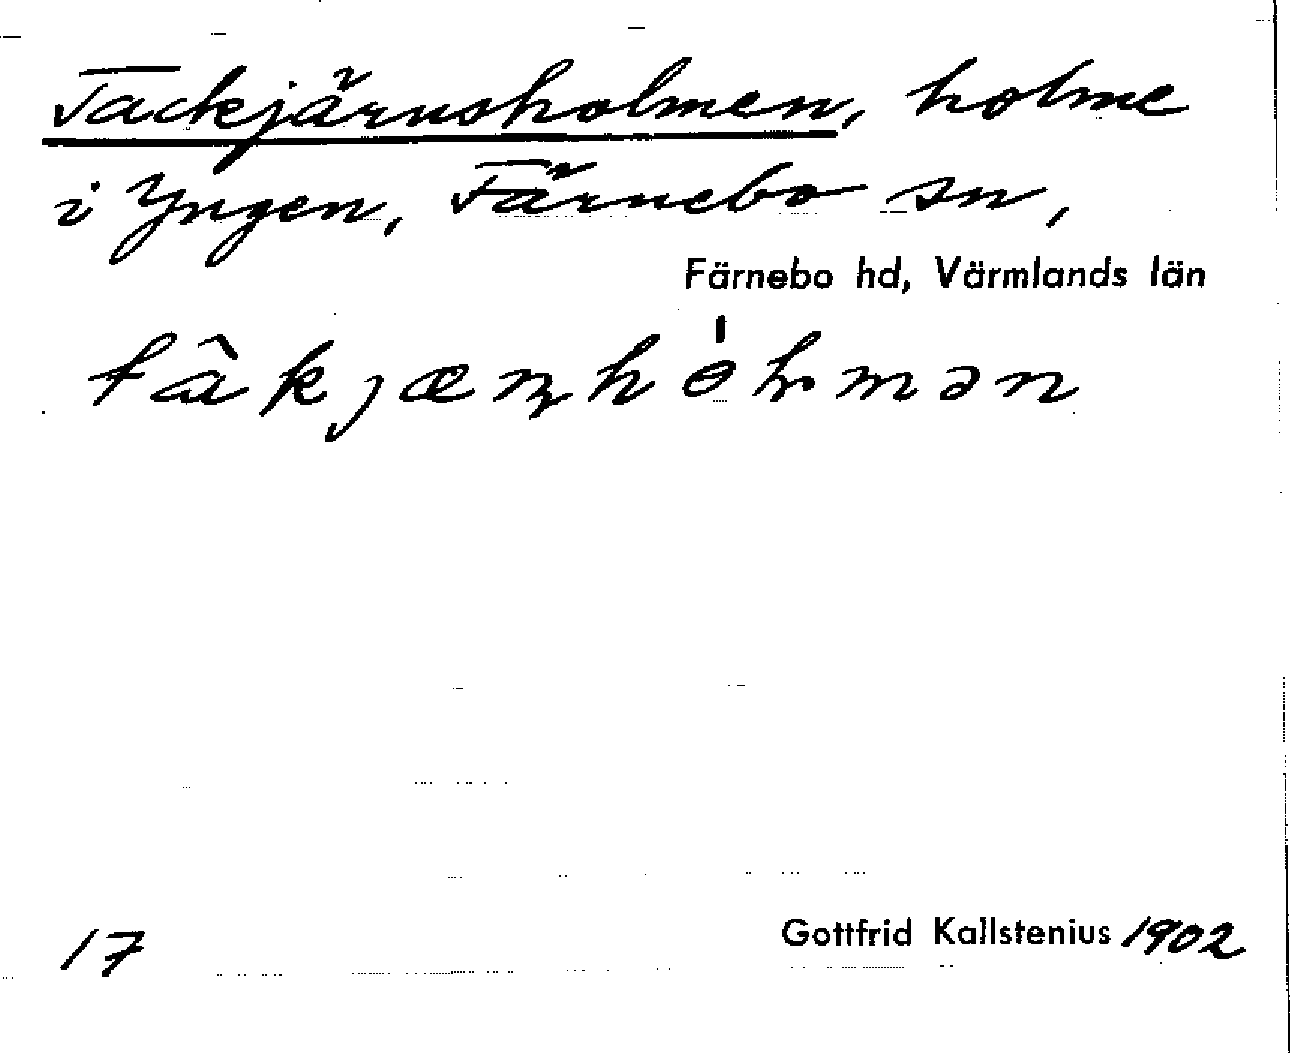 Tackjärnsholmen, holme
i Yngen, Färnebo sn,
Färnebo hd, Värmlands län
tâkjæɳhɵ̍lmən
17
Gottfrid Kallstenius 1902